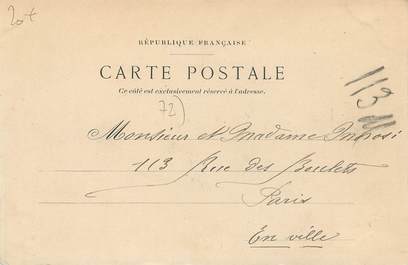 20+
RÉPUBLIQUE FRANÇAISE
CARTE POSTALE
Ce côté est exclusivement réservé à l'adresse.
72)
Monsieur et Madame
113 Rue des Boulets
Paris
En ville
113